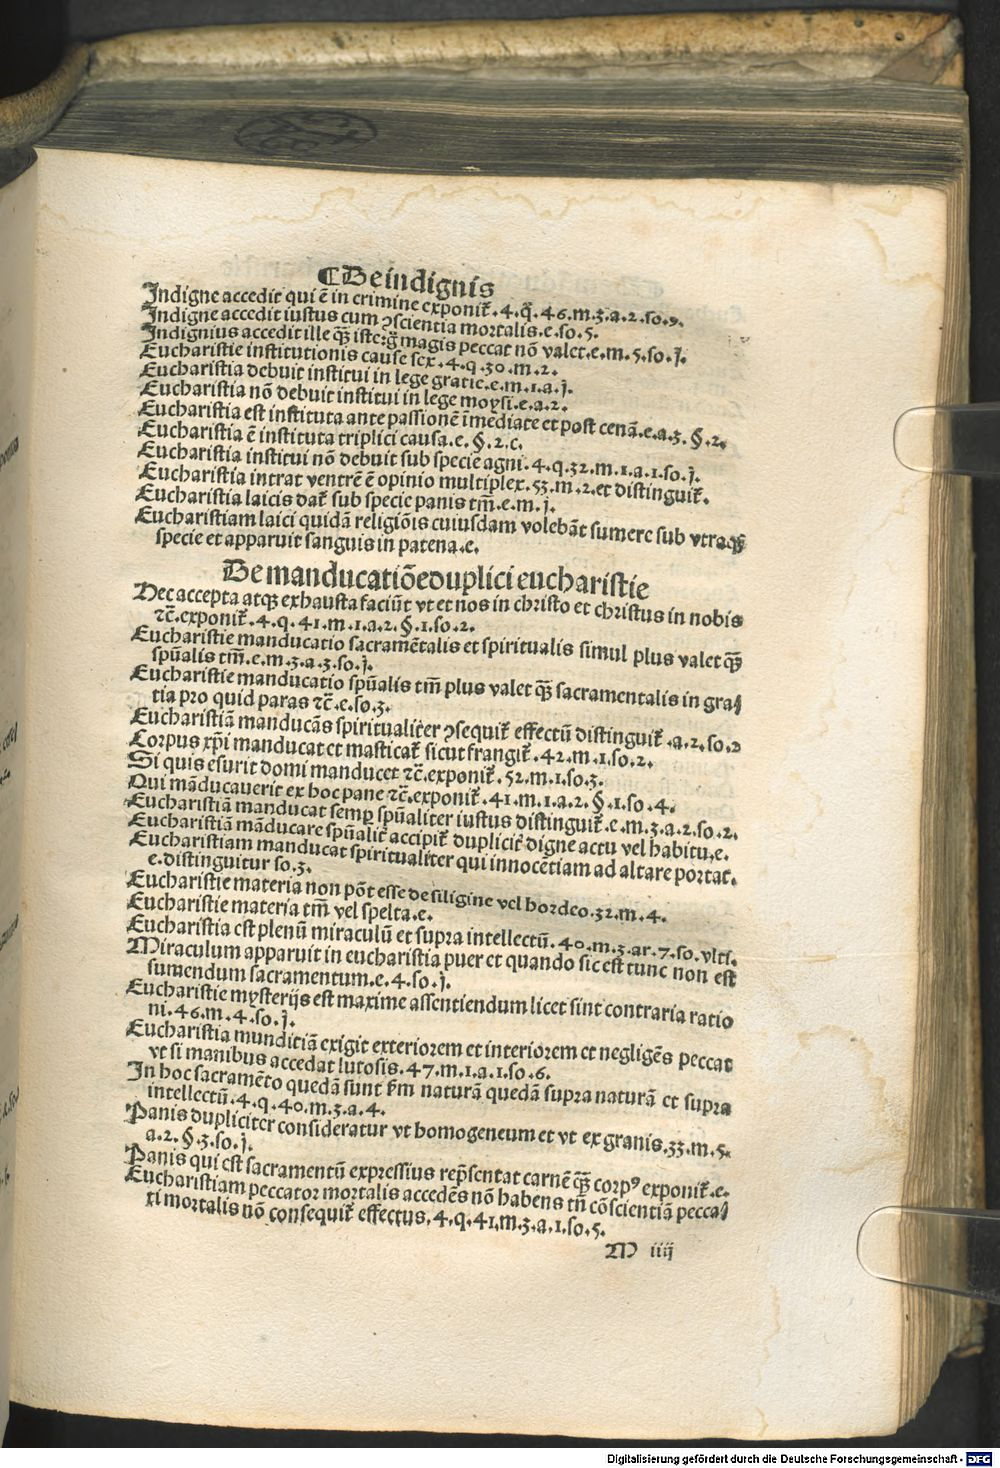 ¶ De indignis
Indigne accedit qui ē in crimine exponit̃.4.q̃.46.m.3.a.2.so.9.
Indigne accedit iustus cum ꝯscientia mortalis.e.so.5.
Indignius accedit ille qꝫ iste:q̃ magis peccat nō valet.e.m.5.so.j.
Eucharistie institutionis cause sex.4.q.30.m.2.
Eucharistia debuit institui in lege gratie.e.m.1.a.j.
Eucharistia nō debuit institui in lege moysi.e.a.2.
Eucharistia est instituta ante passionē īmediate et post cenā.e.a.3.§.2.
Eucharistia ē instituta triplici causa.e.§.2.c.
Eucharistia institui nō debuit sub specie agni.4.q.32.m.1.a.1.so.j.
Eucharistia intrat ventrē ē opinio multiplex.53.m.2.et distinguit̃.
Eucharistia laicis dat̃ sub specie panis tm̄.e.m.j.
Eucharistiam laici quidā religiōis cuiusdam volebāt sumere sub vtraqꝫ
specie et apparuit sanguis in patena.e.
De manducatiōe duplici eucharistie
Hec accepta atqꝫ exhausta faciūt vt et nos in christo et christus in nobis
⁊c̄.exponit̃.4.q.41.m.1.a.2.§.1.so.2.
Eucharistie manducatio sacramētalis et spiritualis simul plus valet qꝫ̄
spūalis tm̄.e.m.3.a.3.so.j.
Eucharistie manducatio spūalis tm̄ plus valet qꝫ̄ sacramentalis in gra⸗
tia pro quid paras ⁊c̄.e.so.3.
Eucharistiā manducās spiritualiter ꝯsequit̃ effectū distinguit̃.a.2.so.2
Corpus xp̄i manducat et masticat̃ sicut frangit̃.42.m.1.so.2.
Si quis esurit domi manducet ⁊c̄.exponit̃.52.m.1.so.3.
Qui māducauerit ex hoc pane ⁊c̄.exponit̃.41.m.1.a.2.§.1.so.4.
Eucharistiā manducat semꝑ spūaliter iustus distinguit̃.e.m.3.a.2.so.2.
Eucharistiā māducare spūalit̃ accipit̃ duplicit̃ digne actu vel habitu.e.
Eucharistiam manducat spiritualiter qui innocētiam ad altare portat.
e.distinguitur so.3.
Eucharistie materia non pōt esse de siligine vel hordeo.32.m.4.
Eucharistie materia tm̄ vel spelta.e.
Eucharistia est plenū miraculū et supra intellectū.40.m.3.ar.7.so.vlt̃.
Miraculum apparuit in eucharistia puer et quando sic est tunc non est
sumendum sacramentum.e.4.so.j.
Eucharistie mysterijs est maxime assentiendum licet sint contraria ratio
ni.46.m.4.so.j.
Eucharistia munditiā exigit exteriorem et interiorem et negligēs peccat
vt si manibus accedat lutosis.47.m.1.a.1.so.6.
In hoc sacramēto quedā sunt ẜm naturā quedā supra naturā et supra
intellectū.4.q.40.m.3.a.4.
Panis dupliciter consideratur vt homogeneum et vt ex granis.33.m.5.
a.2.§.3.so.j.
Panis qui est sacramentū expressius rep̄sentat carnē qꝫ̄ corpꝰ exponit̃.e.
Eucharistiam peccator mortalis accedēs nō habens tn̄ cōscientiā pecca⸗
ti mortalis nō consequit̃ effectus.4.q.41.m.3.a.1.so.5.
M iiij
Digitalisierung gefördert durch die Deutsche Forschungsgemeinschaft - DFG